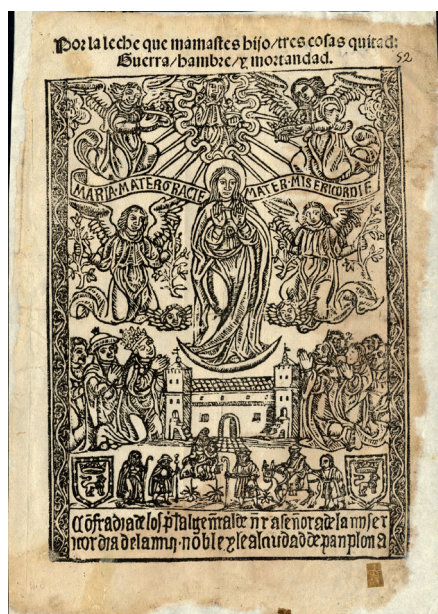 Por la leche que mamastes hijo/tres cosas quitad:
Guerra/hambre/y mortandad.
52
MARIA·MATER·GRACIE
MATER·MISERICORDIE
Cõfradia de los pital general de nra señora de la miser
icordia de la mui·noble y leal ciudad de panplona